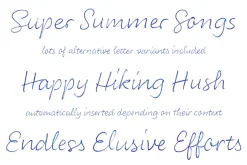 Super Summer Songs
lots of alternative letter variants included
Happy Hiking Hush
automatically inserted depending on their context
Endless Elusive Efforts